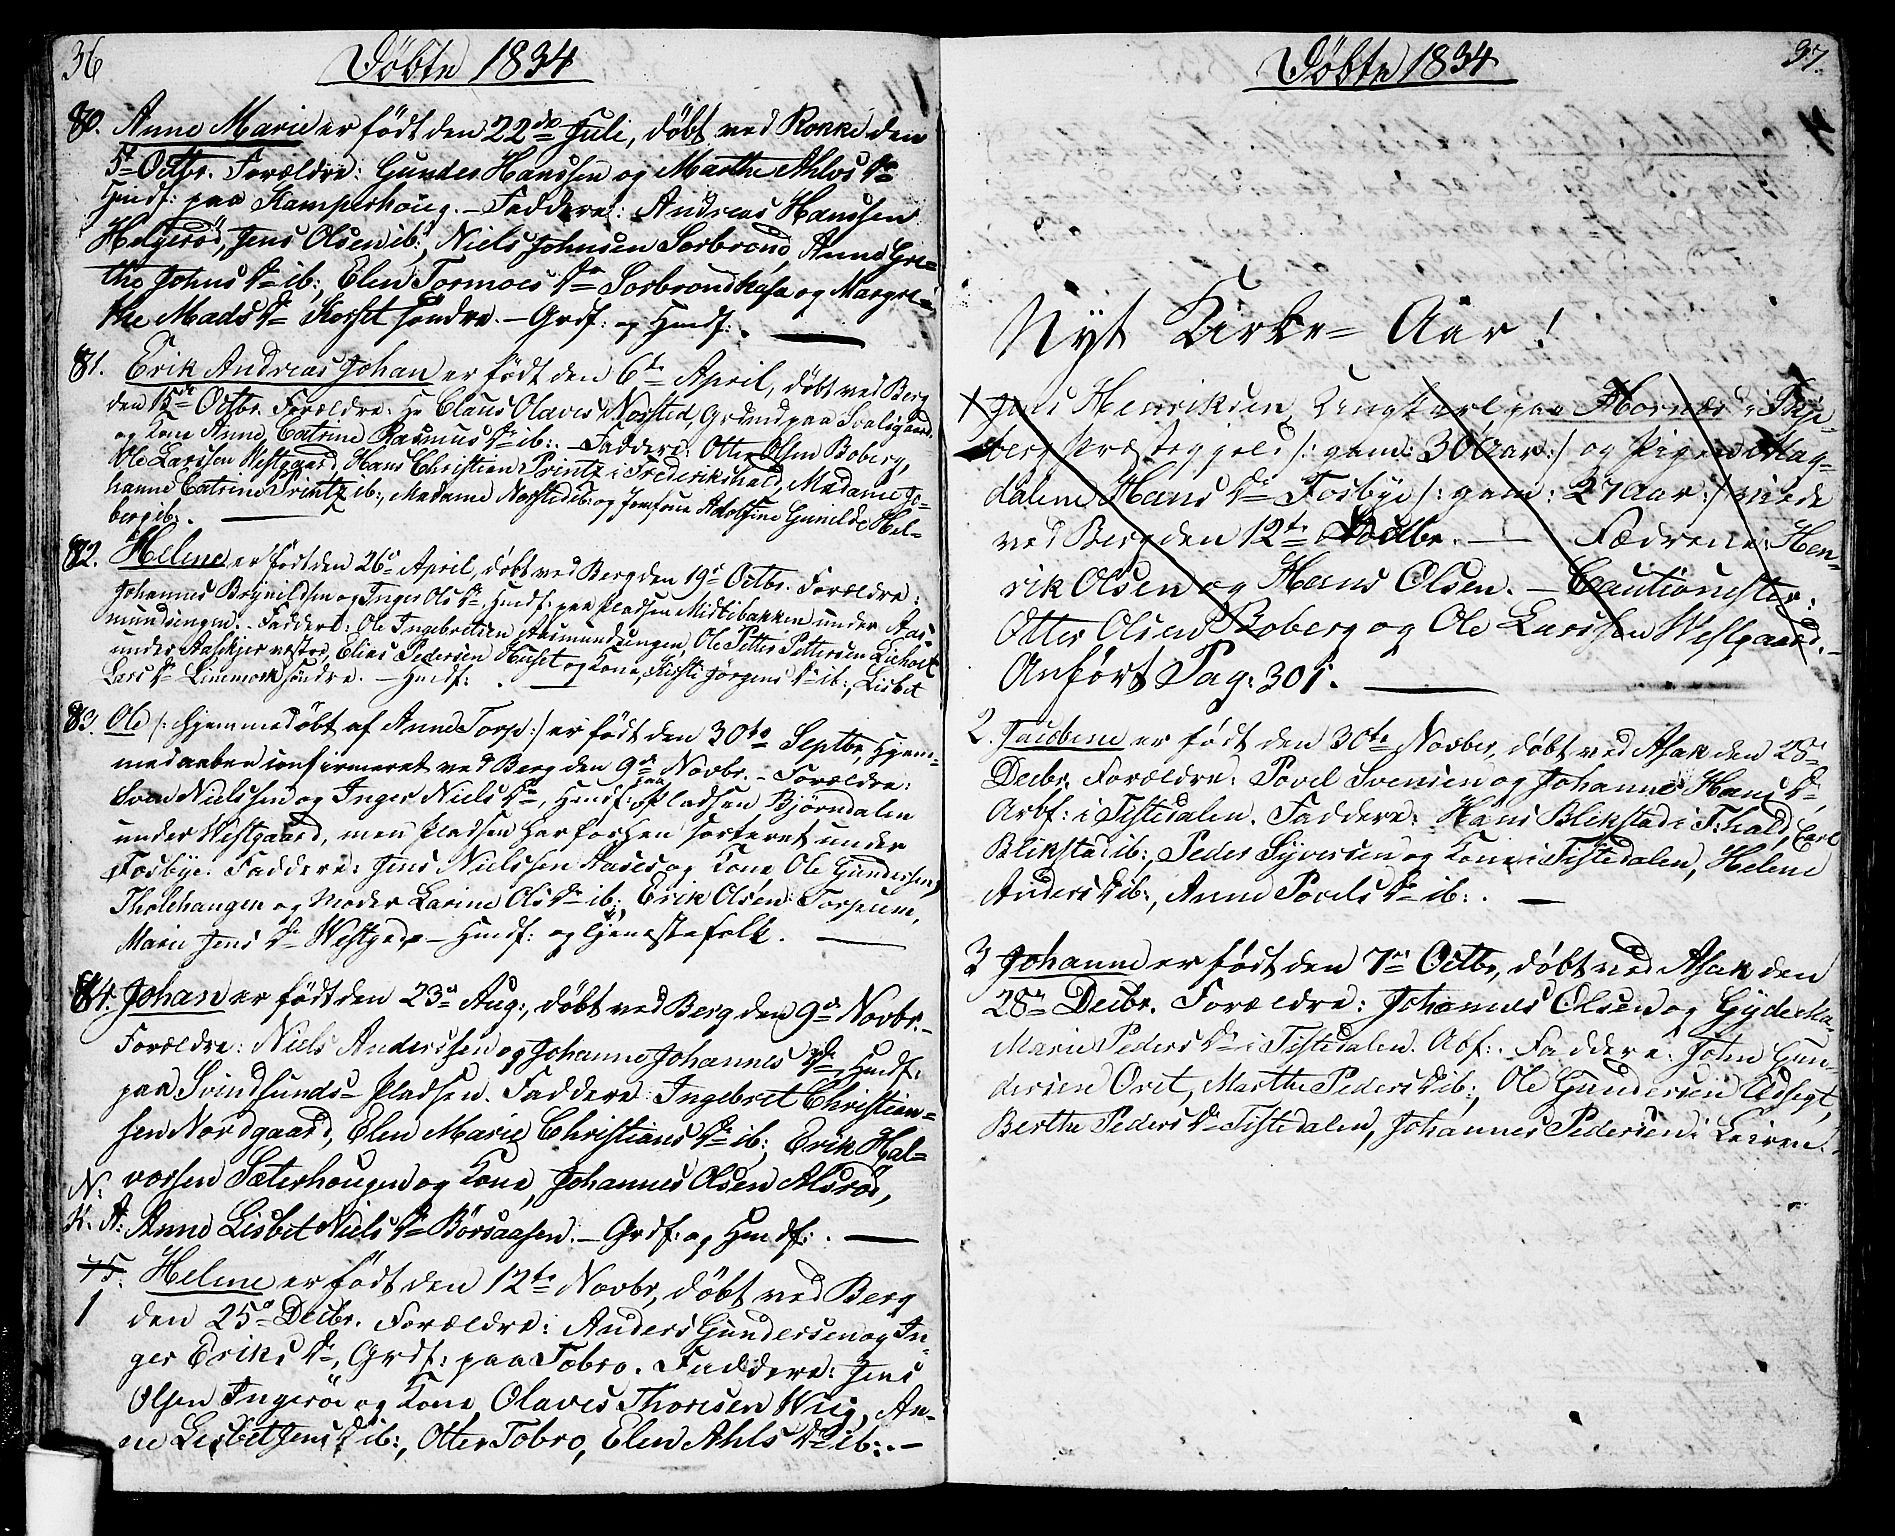 36
Døbte 1834
80. Anne Marie er født den 22de Juli, døbt ved Rokke den
5t Octbr. Forældre: Gunder Hanssen og Marthe Ahlvs Dr
Huusf: paa Kamperhoug. – Faddere: Andreas Hanssen
Helgerød, Jens Olsen ib:, Niels Johnsen Sorbrond, Anne Gre=
the Johns Dr ib:, Elen Tormoes Dr Sorbrondkasa og Margre=
the Mads Dr Korset søndre. – Grdf: og Huusf: .
81. Erik Andreas Johan er født den 6te April, døbt ved Berg
den 15de Octbr. Forældre: Hr Claus Olaves Norsted, Grdmd paa Svalsgaard
og Kone Anne Catrine Rasmus Dr ib: – Faddere: Otter Olsen Boberg,
Ole Larssen Westgaard, Hans Christian Printz i Frederikshald, Madame Jo=
hanne Catrine Printz ib:, Madame Norsted ib: og Jomfrue Adolfine Gunilde Hel=
berg ib: .
82. Helene er født den 26de April, døbt ved Berg den 19de Octbr. Forældre:
Johannes Brynildsen og Inger Ols Dr, Huusf: paa Pladsen Midtibakken under Aas=
mundungen. – Faddere: Ole Ingebretsen Aasmundungen, Ole Petter Pettersen Lieholt
under Aaskjer vestre, Elias Pedersen Huset og Kone, Kisti Jørgens Dr ib:, Lisbet
Lars Dr Liumork søndre. – Huusf: .
83. Ole /: hjemmedøbt af Anne Torp :/ er født den 30te Septbr, Hjem=
medaaben confirmeret ved Berg den 9de Novbr. – Forældre:
Sven Nielssen og Inger Niels Dr, Huusf: paa Pladsen Bjørndalen
under Westgaard, men Pladsen har forhen sorteret under
Fosbye. Faddere: Jens Nielssen Aases og Kone, Ole Gundersen,
Tholehaugen og Moder Larine Ols Dr ib:, Erik Olsen Torpeium,
Marie Jens Dr Westgrd. – Huusf: og Tjenestefolk.
84. Johan er født den 23de Aug:, døbt ved Berg den 9de Novbr. –
Forældre: Niels Anderssen og Johanne Johannes Dr, Huusf:
paa Svindsunds= Pladsen. Faddere: Ingebret Christian=
sen Nordgaard, Elen Marie Christians Dr ib:, Erik Hal=
N: vorsen Sæterhougen og Kone, Johannes Olsen Alsrød,
K. A: Anne Lisbet Niels Dr Børsaasen. – Grdf: og Huusf: .
75. Helene er født den 12te Novbr, døbt ved Berg
1 den 25de Decbr. Forældre: Anders Gundersen og In=
ger Eriks Dr, Grdf: paa Tobro. Faddere: Jens
Olsen Ingerø og Kone, Olaves Thoresen Wiig, An=
ne Lisbet Jens D ib:, Otter Tobro, Elen Ahls Dr ib: . –
Døbte 1834
37.
Nyt Kirke= Aar!
1 Jens Henriksen, Ungkarl paa Hornæs i Skje=
berg Præstegjeld /: gam: 30 Aar :/ og Pigen Mag=
dalene Hans Dr Fosbye /: gam: 27 Aar :/ viede
ved Berg den 12te Decbr. – Fædrene: Hen=
rik Olsen og Hans Olsen. – Cautionister:
Otter Olsen Boberg og Ole Larssen Westgaard. –
Anført Pag: 301.
2. Jacobine er født den 30te Novber, døbt ved Asak den 28de
Decbr. Forældre: Povel Svensen og Johanne Hans Dr,
Arbf: i Tistedalen. Faddere: Hans Blikstad i F:hald, Carl
Blikstad ib:, Peder Syversen og Kone i Tistedalen, Helene
Anders D ib:, Anne Povels Dr ib: . –
3 Johanne er født den 7de Octbr, døbt ved Asak den
28de Decbr. Forældre: Johannes Olsen og Gyde Ma=
Marie Peders Dr i Tistedalen. Abf: . Faddere: John Gun=
dersen Øret, Marthe Peders D ib:, Ole Gundersen Udsigt,
Berthe Peders Dr Tistedalen, Johannes Pedersen i Leiren.